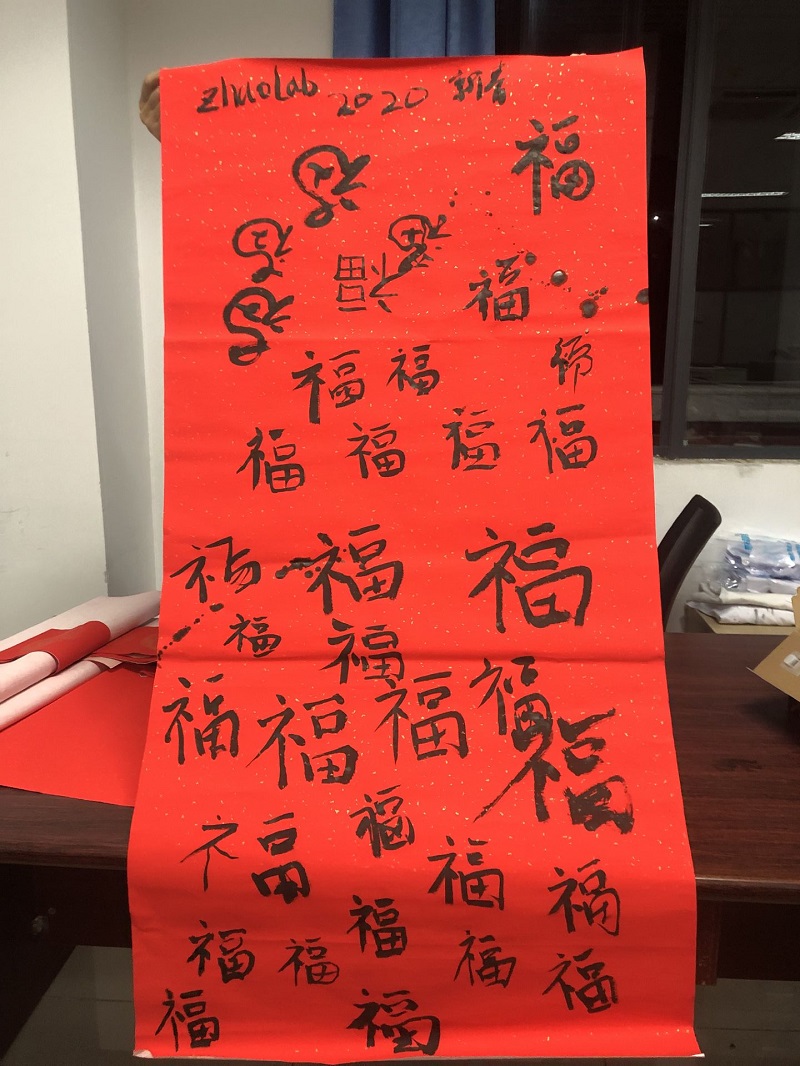 ZhuoLab 2020 新春
福
福
福
福
福
福
福
福
福 福
福 福 福 福
福 福
福
福
福
福 福 福 福
福
福
福
福
福
福
福 福
福
福
福
福